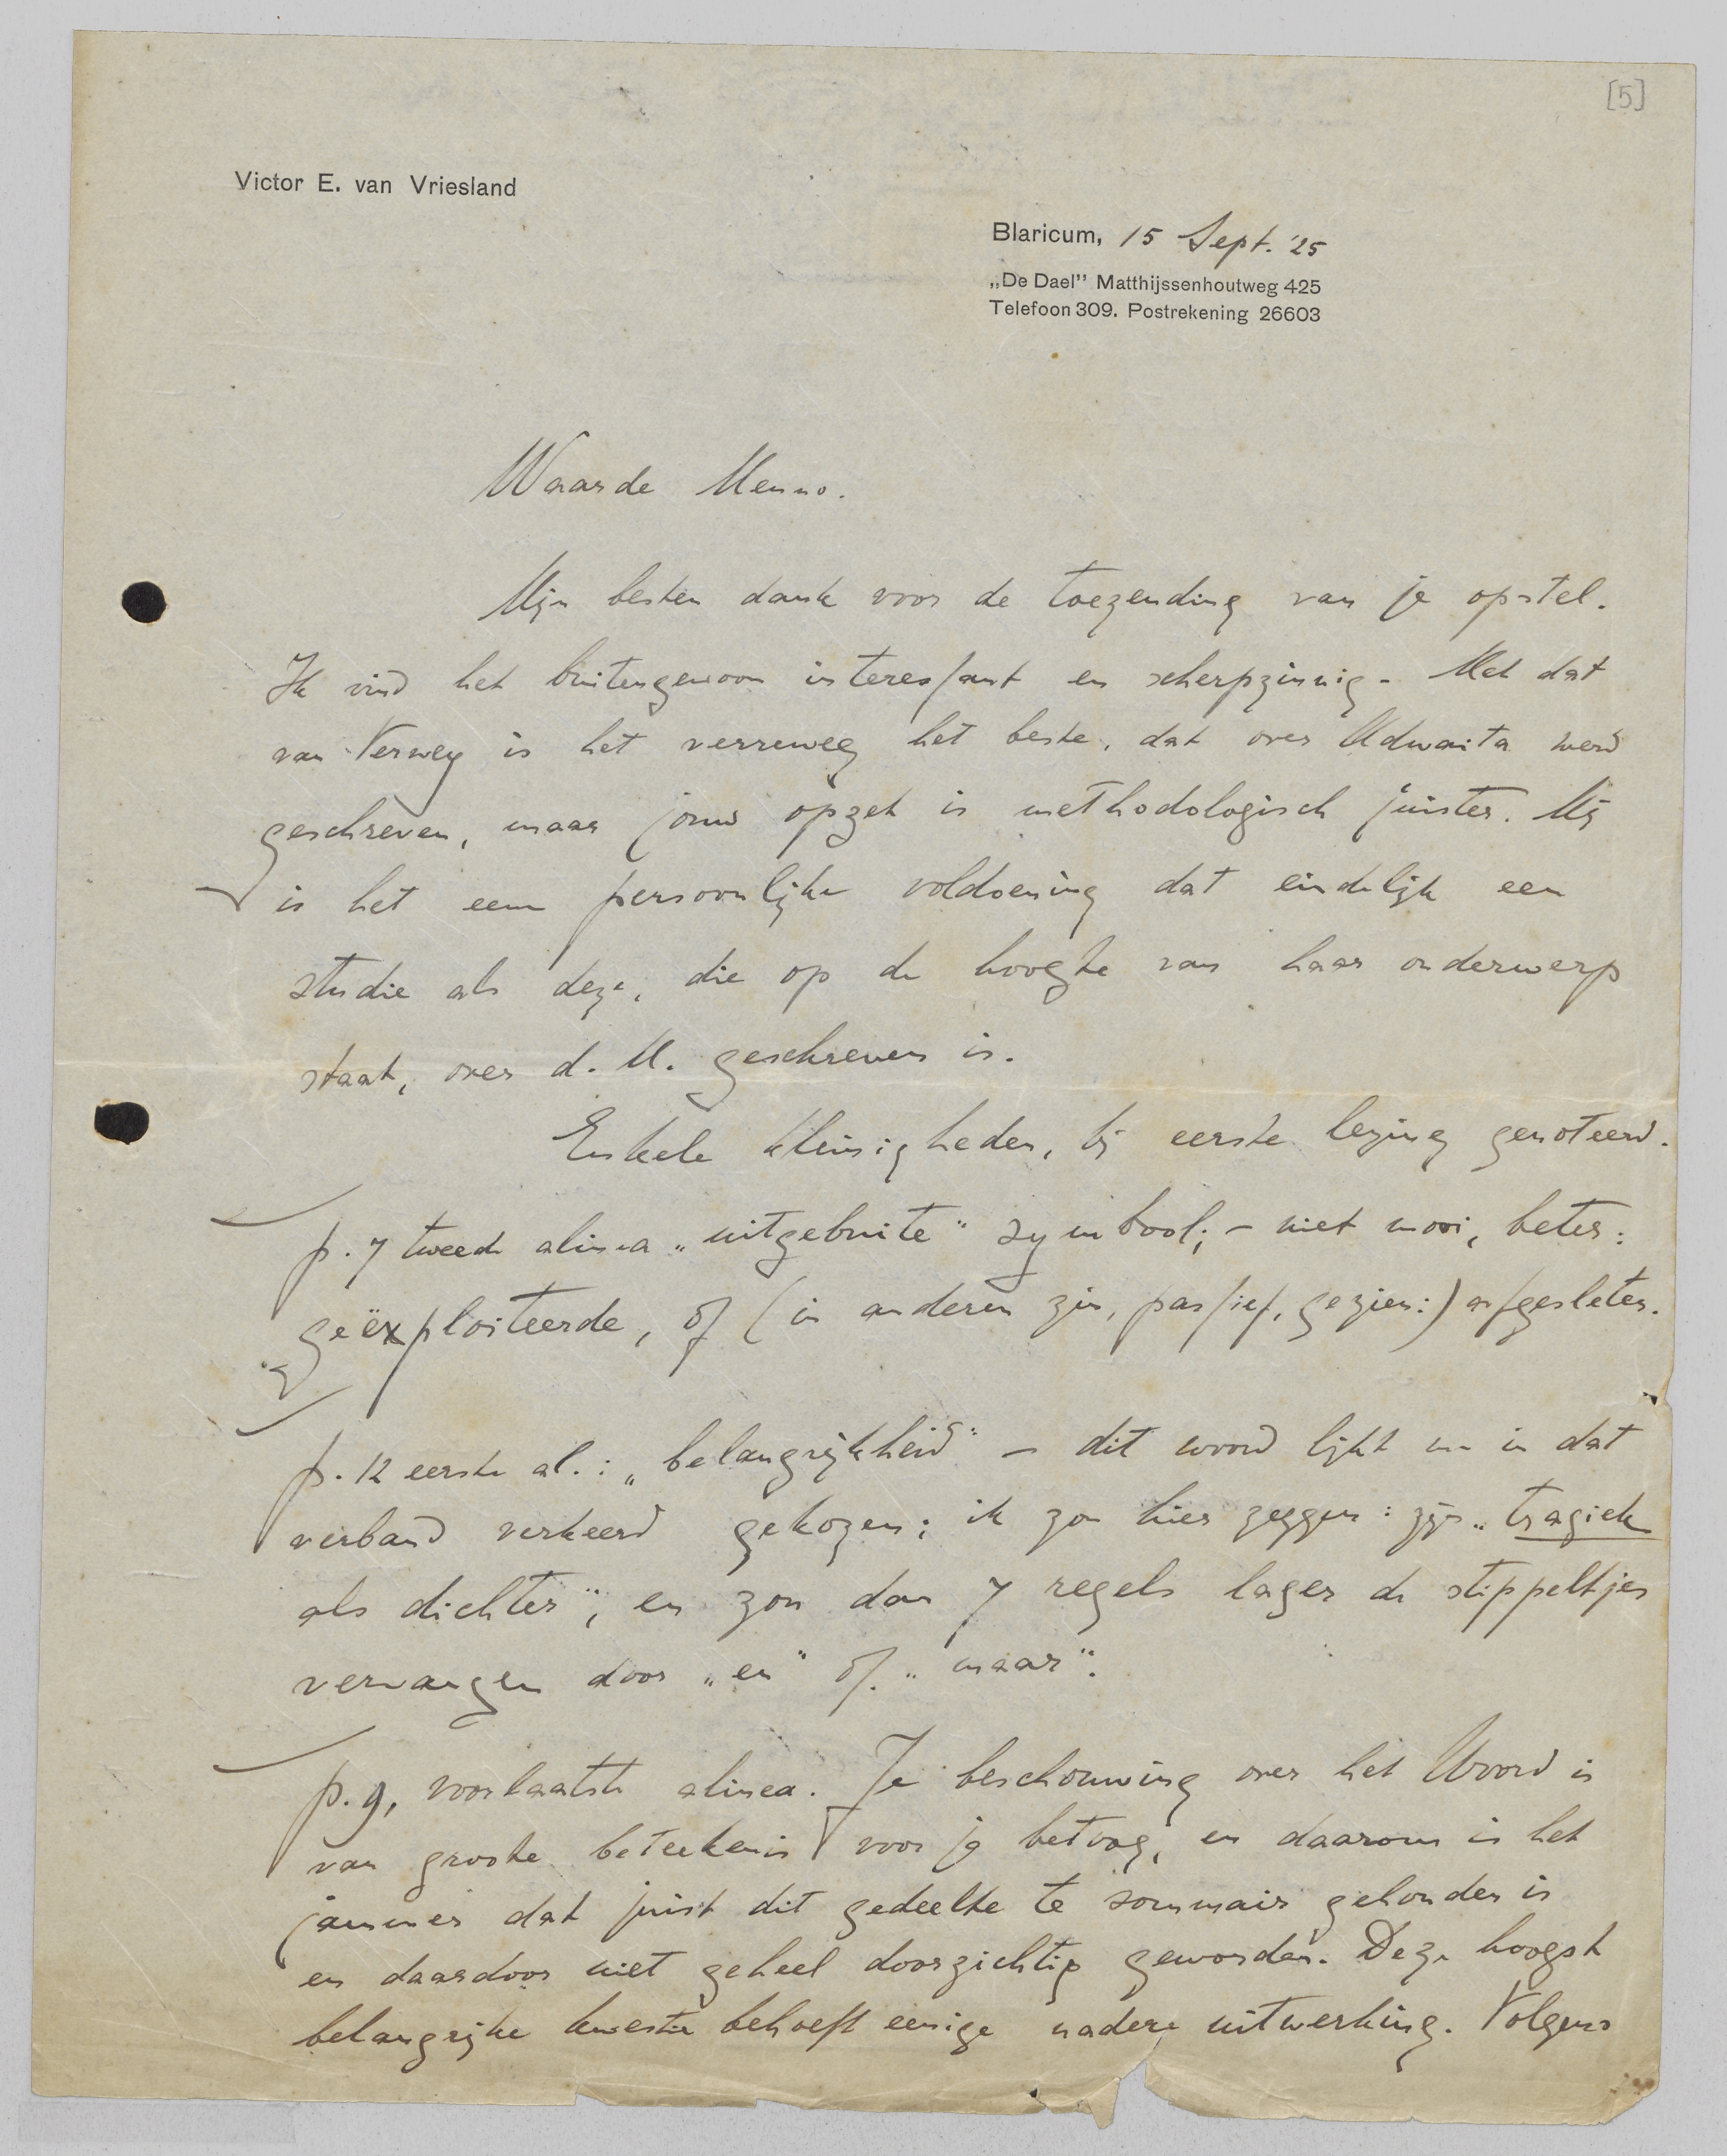 [5]
Victor E. van Vriesland
Blaricum, 15 Sept. '25
„De Dael” Matthijssenhoutweg 425
Telefoon 309. Postrekening 26603
Waarde Menno.
Mijn besten dank voor de toezending van je opstel.
Ik vind het buitengewoon interessant en scherpzinnig. Met dat
van Verwey is het verreweg het beste, dat over Adwaita werd
geschreven, maar jouw opzet is methodologisch juister. Mij
is het een persoonlijke voldoening dat eindelijk een
studie als deze, die op de hoogte van haar onderwerp
staat, over d. M. geschreven is.
Enkele kleinigheden, bij eerste lezing genoteerd.
p. 7 tweede alinea „uitgebuite” symbool; – niet mooi, beter:
geëxploiteerde, of (in anderen zin, passief, gezien:) afgesleten.
p. 12 eerste al.: „belangrijkheid” – dit woord lijkt me in dat
verband verkeerd gekozen; ik zou hier zeggen: zijn „tragiek
als dichter”, en zou dan 7 regels lager de stippeltjes
vervangen door „en” of „maar”.
p. 9, voorlaatste alinea. Je beschouwing over het Woord is
van groote beteekenis voor je betoog, en daarom is het
jammer dat juist dit gedeelte te sommair gehouden is
en daardoor niet geheel doorzichtig geworden. Deze hoogst
belangrijke kwestie behoeft eenige nadere uitwerking. Volgens